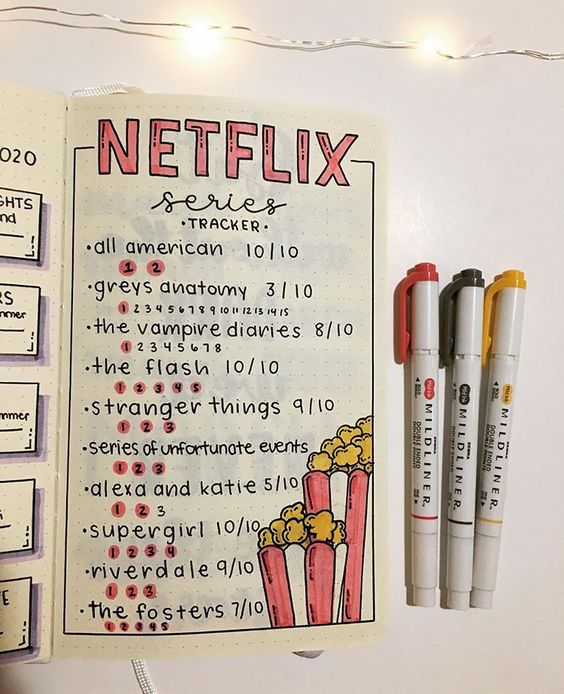 2020
GHTS
nd
RS
mmer
mmer
NETFLIX
series
•TRACKER•
•all american 10/10
1 2
•greys anatomy 3/10
1 2 3 4 5 6 7 8 9 10 11 12 13 14 15
•the vampire diaries 8/10
1 2 3 4 5 6 7 8
•the flash 10/10
1 2 3 4 5
•stranger things 9/10
1 2 3
•series of unfortunate events
1 2 3
•alexa and katie 5/10
1 2 3
•supergirl 10/10
1 2 3 4
•riverdale 9/10
1 2 3
•the fosters 7/10
1 2 3 4 5
MILDLINER
DOUBLE ENDED
MILDLINER
DOUBLE ENDED
MILDLINER
DOUBLE ENDED